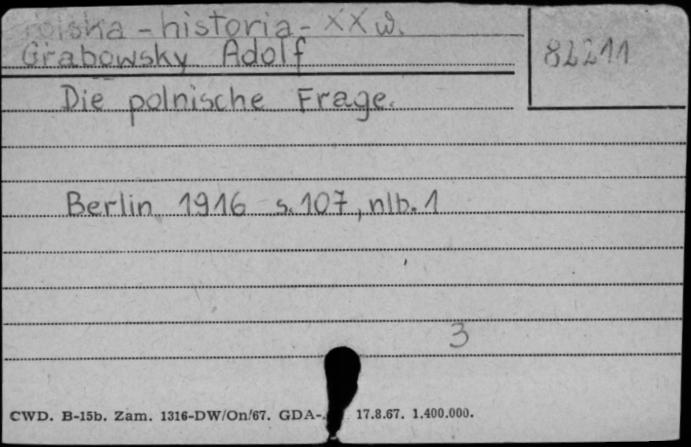 Polska - historia - XX w.
Grabowsky Adolf
82211
Die polnische Frage.
Berlin 1916 s. 107, nlb. 1
3
CWD. B-15b. Zam. 1316-DW/On/67. GDA- 17.8.67. 1.400.000.